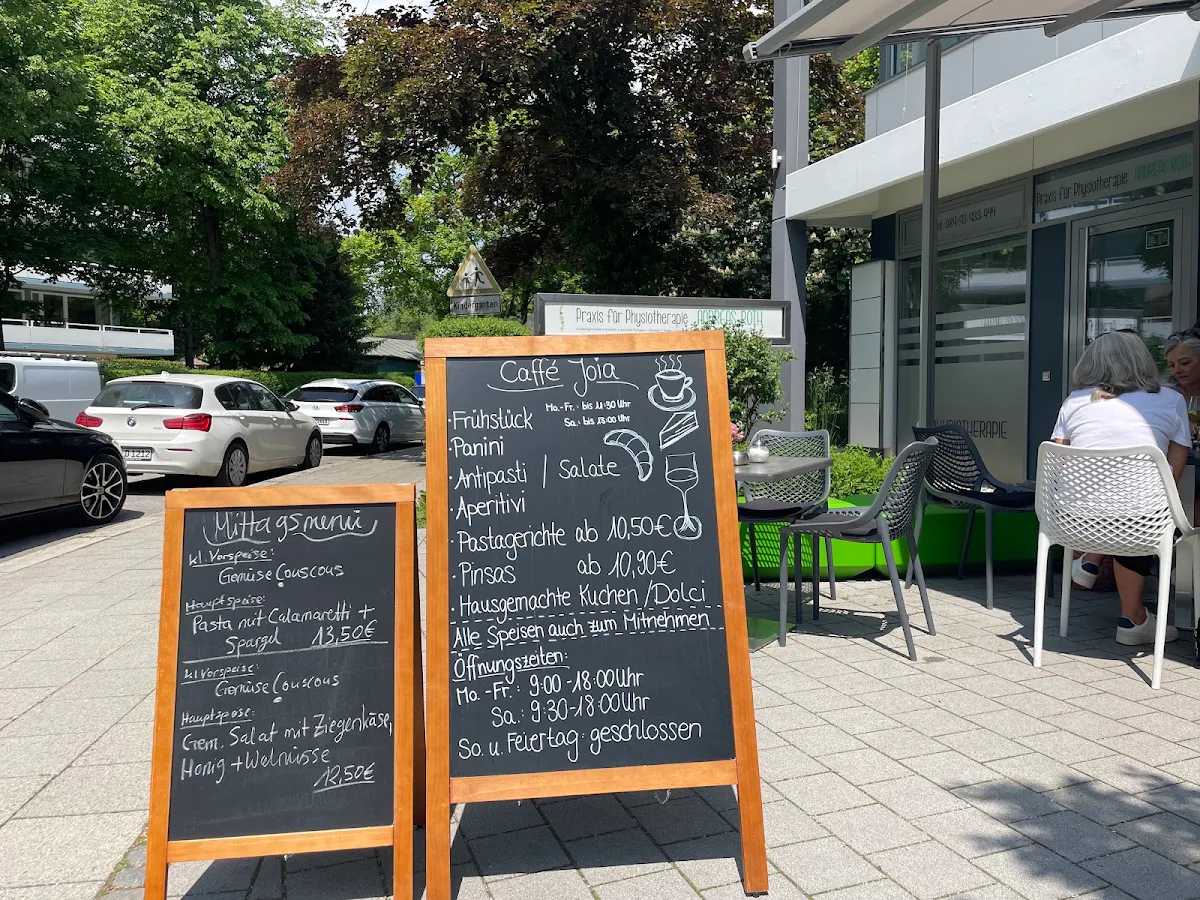 Kindergarten
Praxis für Physiotherapie ANDREAS ROTH
Praxis für Physiotherapie ANDREAS ROTH
Tel. 089 93 933 944
PHYSIOTHERAPIE
Caffé Joia
·Frühstück Mo.-Fr.: bis 11:30 Uhr
Sa.: bis 13:00 Uhr
·Panini
·Antipasti / Salate
·Aperitivi
·Pastagerichte ab 10,50€
·Pinsas ab 10,90€
·Hausgemachte Kuchen/Dolci
Alle Speisen auch zum Mitnehmen
Öffnungszeiten:
Mo.-Fr.: 9:00-18:00Uhr
Sa.: 9:30-18:00Uhr
So. u. Feiertag: geschlossen
Mittagsmenü
kl. Vorspeise:
Gemüse Couscous
Hauptspeise:
Pasta mit Calamaretti +
Spargel 13,50€
kl Vorspeise:
Gemüse Couscous
Hauptspeise:
Gem. Salat mit Ziegenkäse,
Honig + Walnüsse
12,50€